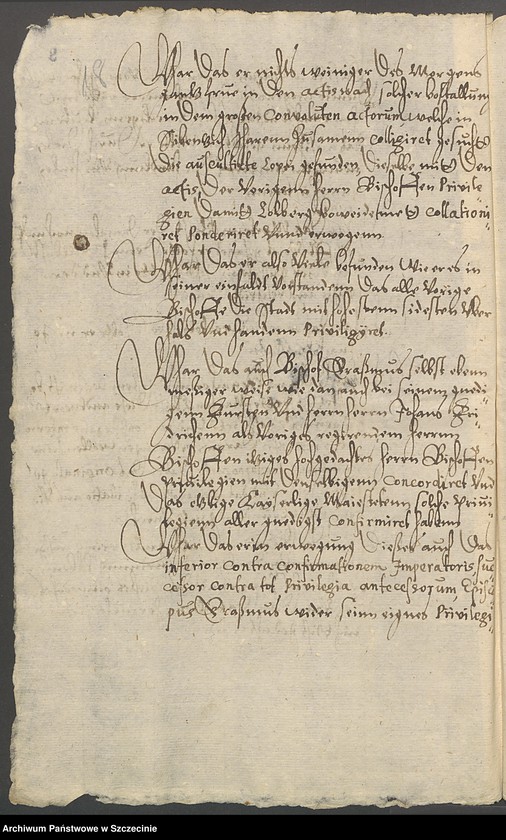 War das er nichts weiniger des Morgens
gantz frue in den actis nach solcher bestallung
in dem großen Convoluten actorum welche in
Jharenn Zusamenn colligiret gesucht
die auscultirte Copei gefunden, dieselbe mit den
actis, der Vorigenn herrn Bischoffen Privile
gien damit Colberg bewidemet collationi
ret Ponderiret Vnnd erwogenn
War das er also Viele befunden wie er es in
seiner einfaldt Vorstandenn das alle Vorige
Bischoffe die Stadt mit
Vnd handenn Priviligyret.
War das auch Bischof Eraßmus selbst ebenn
meßiger weise wie dan auch bei seinem gnedi
genn Fursten Vnd herrn herrn Johans Fri
drichenn als Vorigeß regirendem herrnn
Bischoffen itziges hochgedachtes herrn Bischoffen
Privilegien mit denselbigenn Concordiret Vnd
das etzlige Kayserlige Maiestetenn solche Privi
legienn aller gnedigst Confirmiret habenn
War das er in erwegung dieses auch das
inferior contra confirmationem Imperatoris, suc
cessor contra tot Privilegia antecessorum, Episco
pus Eraßmus wider seinn eignes Privilegi
Archiwum Państwowe w Szczecinie